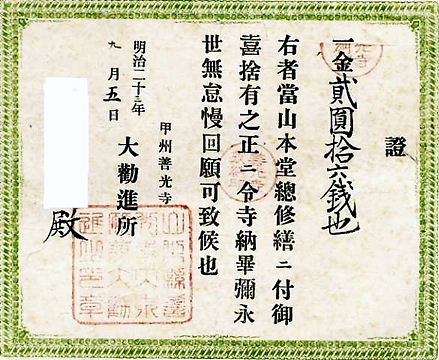 證
一金貳圓拾六錢也
右者當山本堂總修繕ニ付御
喜捨有之正ニ令寺納畢彌永
世無怠慢回願可致候也
明治二十三年
九月五日
甲州善光寺
大勸進所
殿